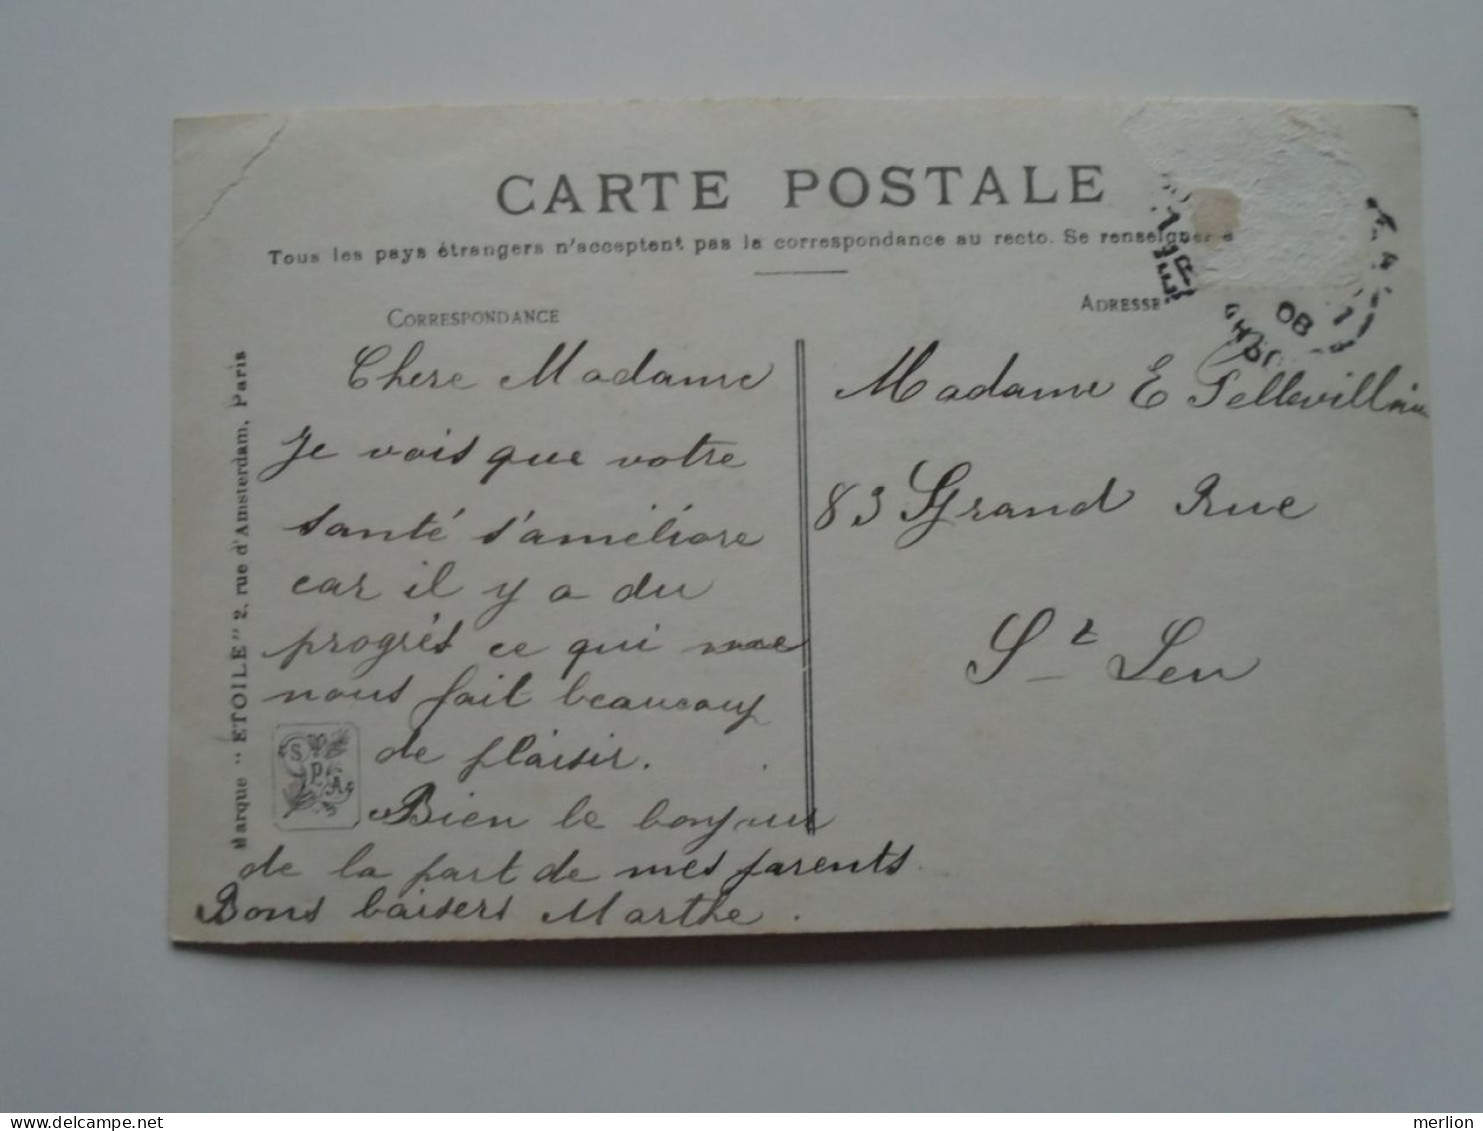 CARTE POSTALE
Tous les pays étrangers n'acceptent pas la correspondance au recto. Se renseigner à
CORRESPONDANCE
ADRESSE
Chere Madame
Je vois que votre
santé s'améliore
car il y a du
progrés ce qui
nous fait beaucoup
de plaisir.
Bien le bonjour
de la part de mes parents
Bons baisers Marthe.
Madame E
83 Grand Rue
St Leu
Marque "ETOILE" 2, rue d'Amsterdam, Paris
S P A
08
delcampe.net
merlion